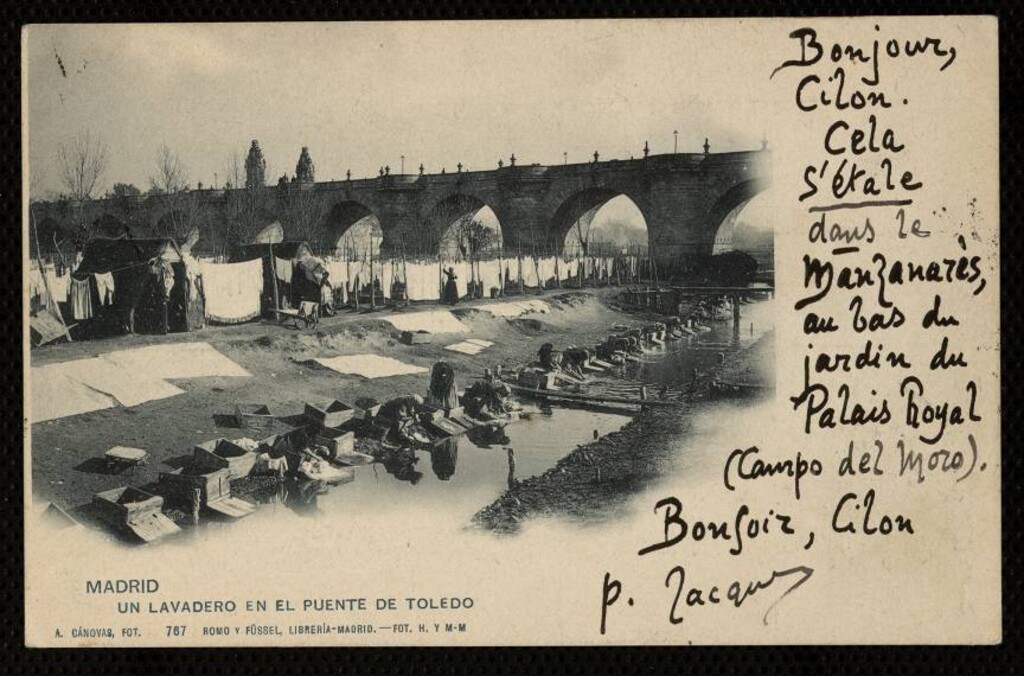 Bonjour,
Cilon.
Cela
s'étale
dans le
Manzanarès,
au bas du
jardin du
Palais Royal
(Campo del Moro).
Bonsoir, Cilon
P. Jacques
MADRID
UN LAVADERO EN EL PUENTE DE TOLEDO
A. CÁNOVAS, FOT. 767 ROMO Y FÜSSEL, LIBRERÍA-MADRID.—FOT. H. Y M-M